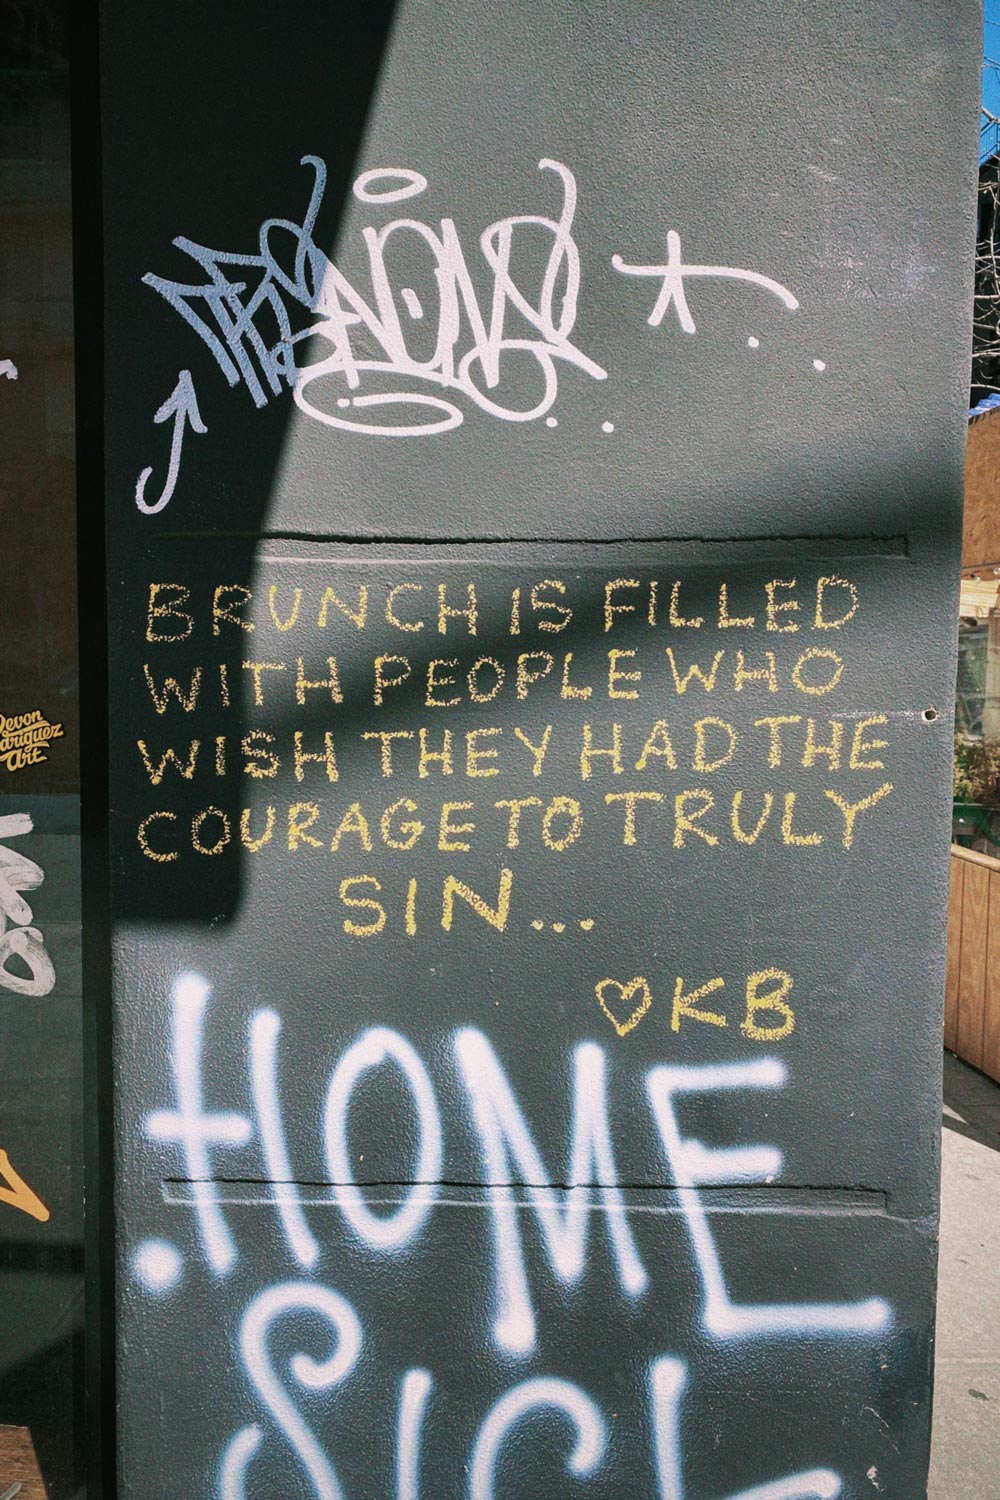 BRUNCH IS FILLED
WITH PEOPLE WHO
WISH THEY HAD THE
COURAGE TO TRULY
SIN...
♡KB
Devon
Rodriguez
Art
HOME
SICK